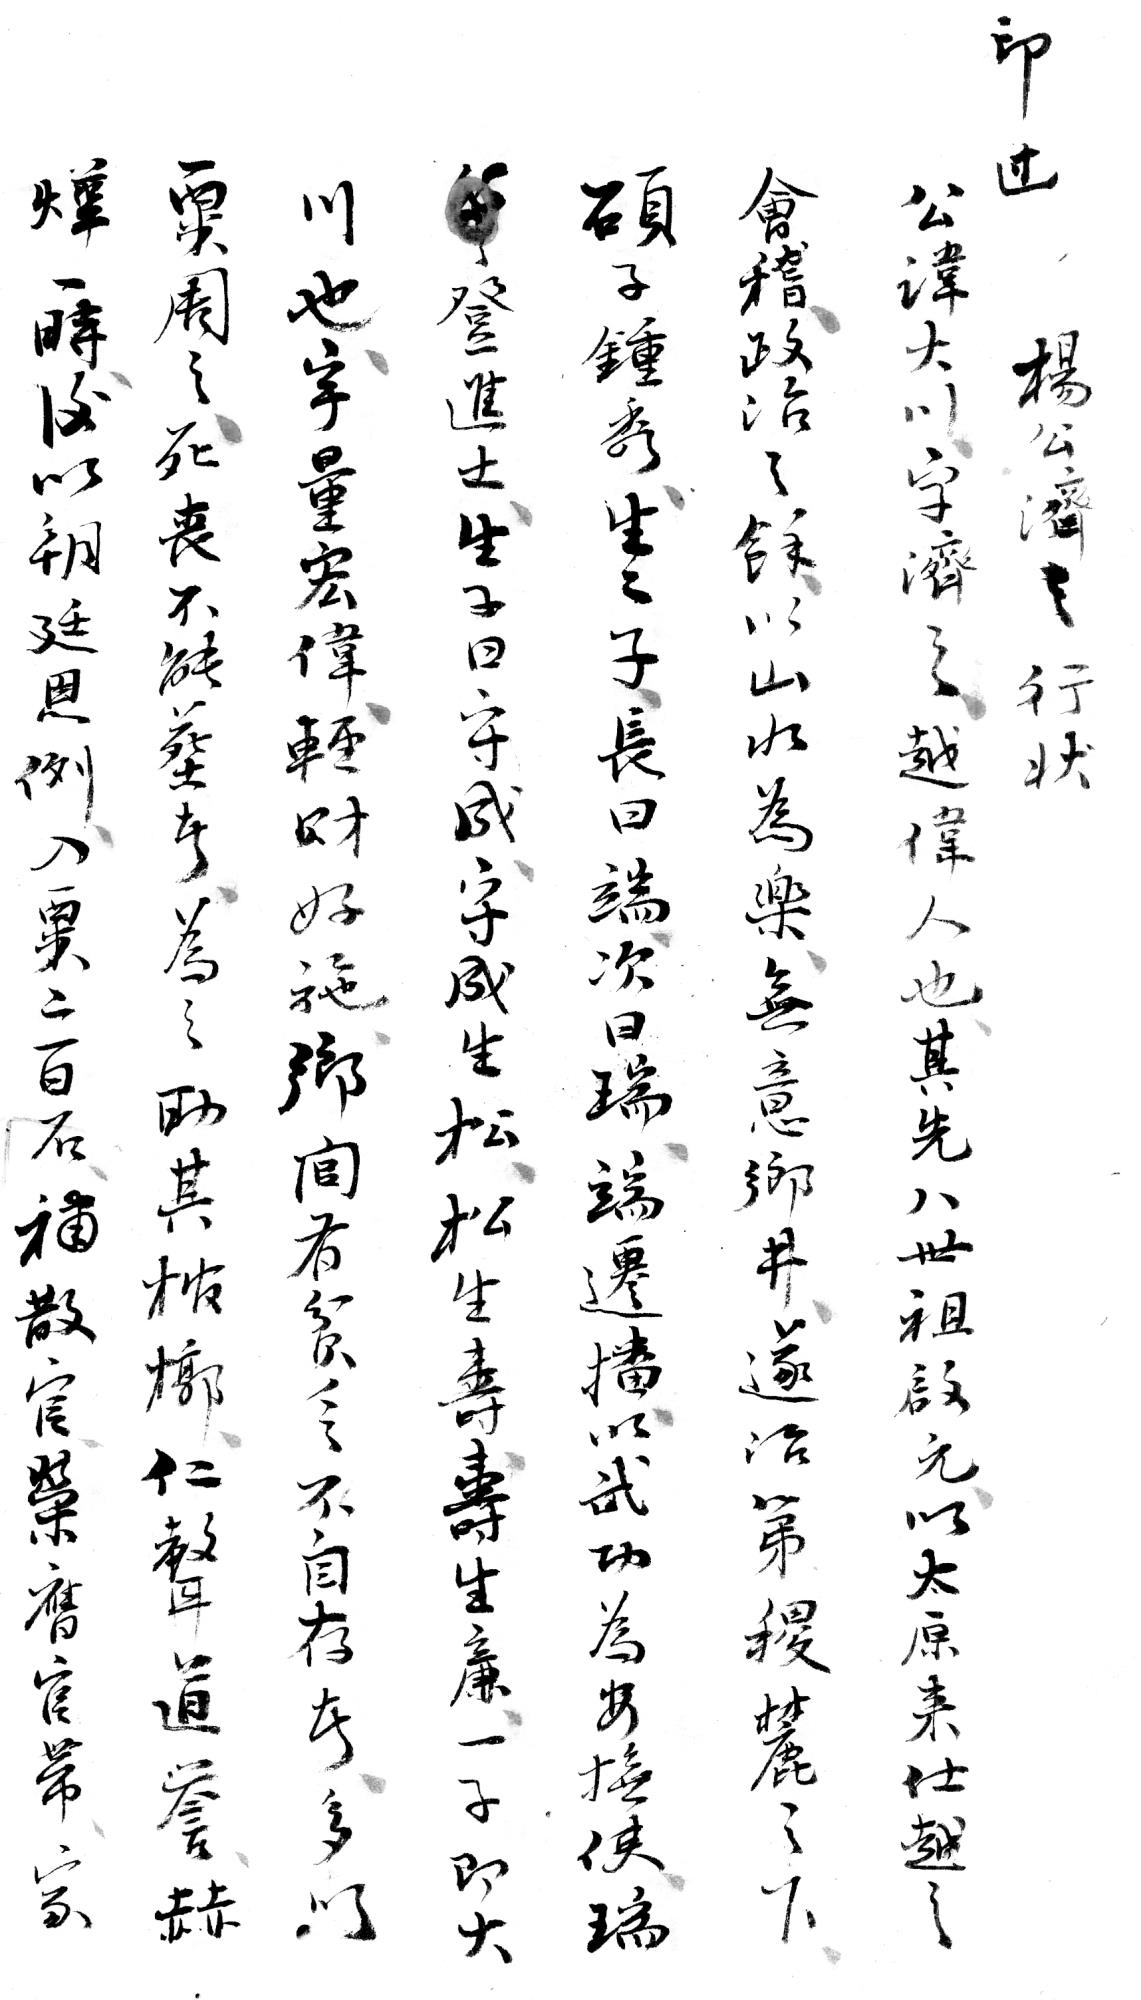 印过
楊公濟之行狀
公諱大川字濟之越偉人也其先八世祖啟元以太原来仕越之
會稽政治之餘以山水為樂無意鄉井遂治第稷麓之下
碩子鍾秀生二子長曰端次曰瑞端遷播以武功為安撫使瑞
登進士生子曰守成守成生松松生壽壽生廉一子即大
川也宇量宏偉輕財好施鄉閭有貧乏不自存者多以
粟周之死喪不能塟者為之助其棺槨仁聲道誉赫
燁一時後以朝廷恩例入粟二百石補散官榮膺官帶家